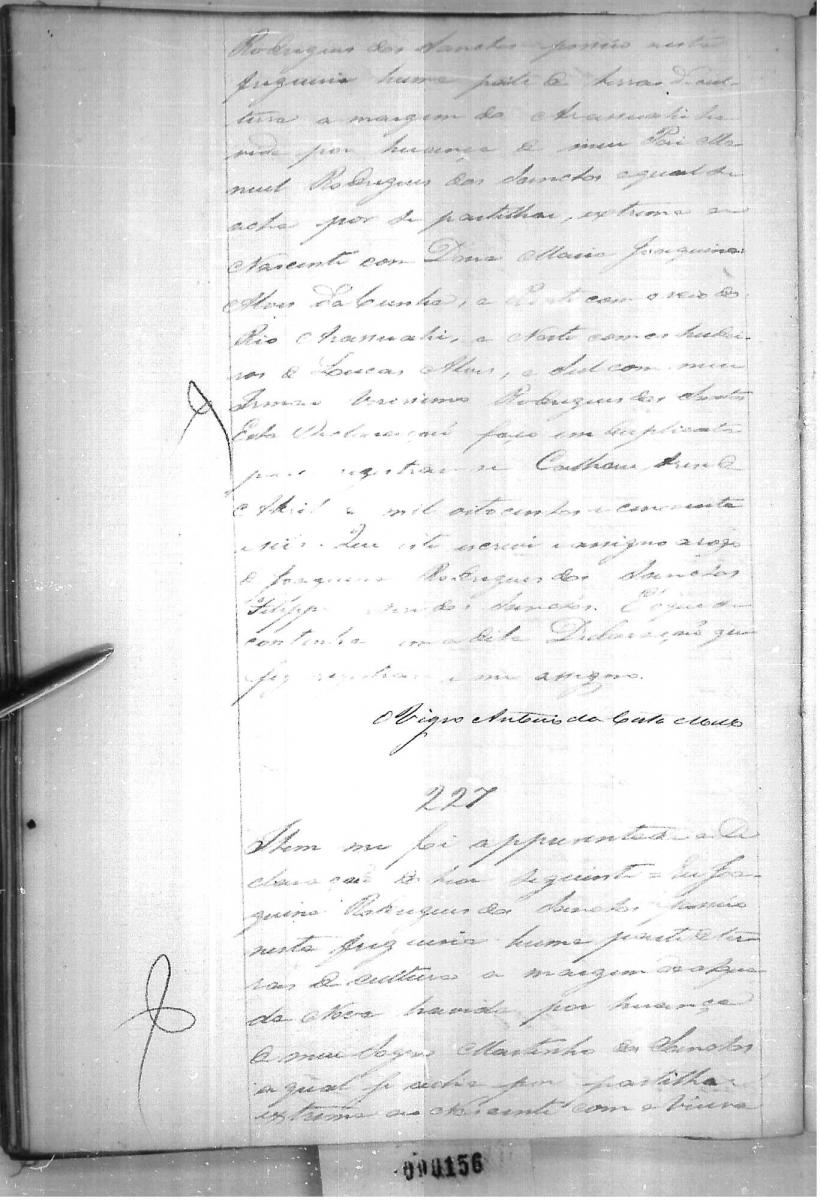 Rodrigues dos Sanctos possúo nesta
freguezia huma parte de terras de cul-
tura a margem do Arassuahi ha-
vida por herança de meu Pai Ma-
noel Rodrigues dos Sanctos a qual se
acha por se partilhar, extrema ao
Nascente com Dona Maria Joaquina
Alves da Cunha, a com o veio do
Rio Arassuahi, a Norte com os herdei-
ros de Lucas Alves, a Sul com meu
Irmão Verissimo Rodrigues dos Santos
Esta Declaração faço em duplicata
para registrar-se Calhau de
Abril de mil oitocentos e cincoenta
e seis. Que este escrevi e assigno a rogo
de Joaquim Rodrigues dos Sanctos
Filippe dos Sanctos. E o que se
continha em a dita Declaração que
fiz registrar e me assigno.
O Vigro Antonio da Costa
227
Item me foi appresentada a De-
claração do theor seguinte = Eu Joa-
quim Rodrigues dos Sanctos possúo
nesta freguezia huma parte de ter-
ras de cultura a margem da Agua
da Nova havida por herança
de meu Sogro Martinho dos Sanctos
a qual se acha por partilhar
extrema ao Nascente com a Viuva
000156